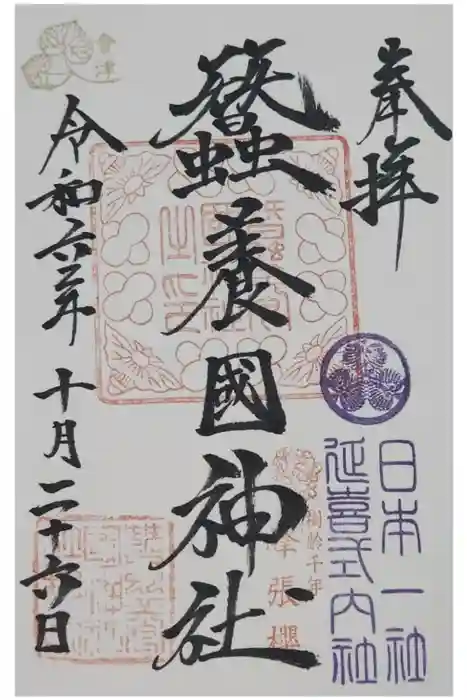 奉拝
日本一社
延喜式内社
蠶養國神社
樹齢千年
峰張櫻
令和六年十月二十六日
會津